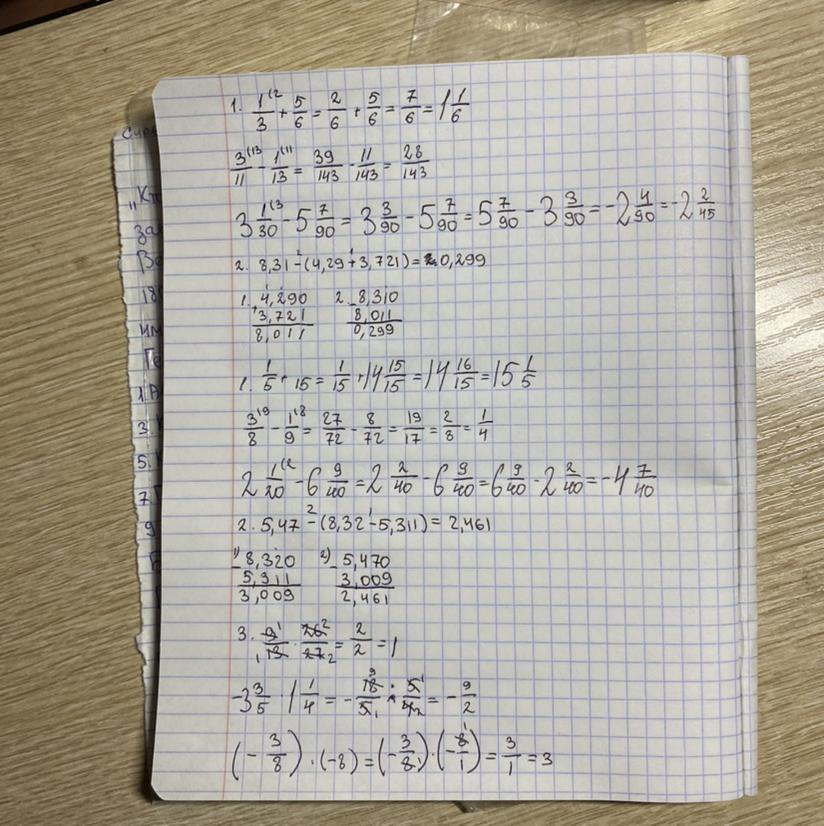 1. 1(2/3 + 5/6 = 2/6 + 5/6 = 7/6 = 1 1/6
3(13/11 - 1(11/13 = 39/143 - 11/143 = 28/143
3 1(3/30 - 5 7/90 = 3 3/90 - 5 7/90 = 5 7/90 - 3 3/90 = -2 4/90 = -2 2/45
2. 8,31 -² (4,29 +¹ 3,721) = 0,299
1. 4,290 2. 8,310
+ 3,721 - 8,011
8,011 0,299
1. 1/5 + 15 = 1/15 + 14 15/15 = 14 16/15 = 15 1/5
3(9/8 - 1(8/9 = 27/72 - 8/72 = 19/17 = 2/8 = 1/4
2 1(2/20 - 6 9/40 = 2 2/40 - 6 9/40 = 6 9/40 - 2 2/40 = -4 7/40
2. 5,47 -² (8,32 -¹ 5,311) = 2,461
1) 8,320 2) 5,470
- 5,311 - 3,009
3,009 2,461
3. 9/13 · 26/27 = 2/2 = 1
-3 3/5 · 1 1/4 = - 18/5 · 5/4 = - 9/2
(- 3/8) · (-8) = (- 3/8) · (- 8/1) = 3/1 = 3